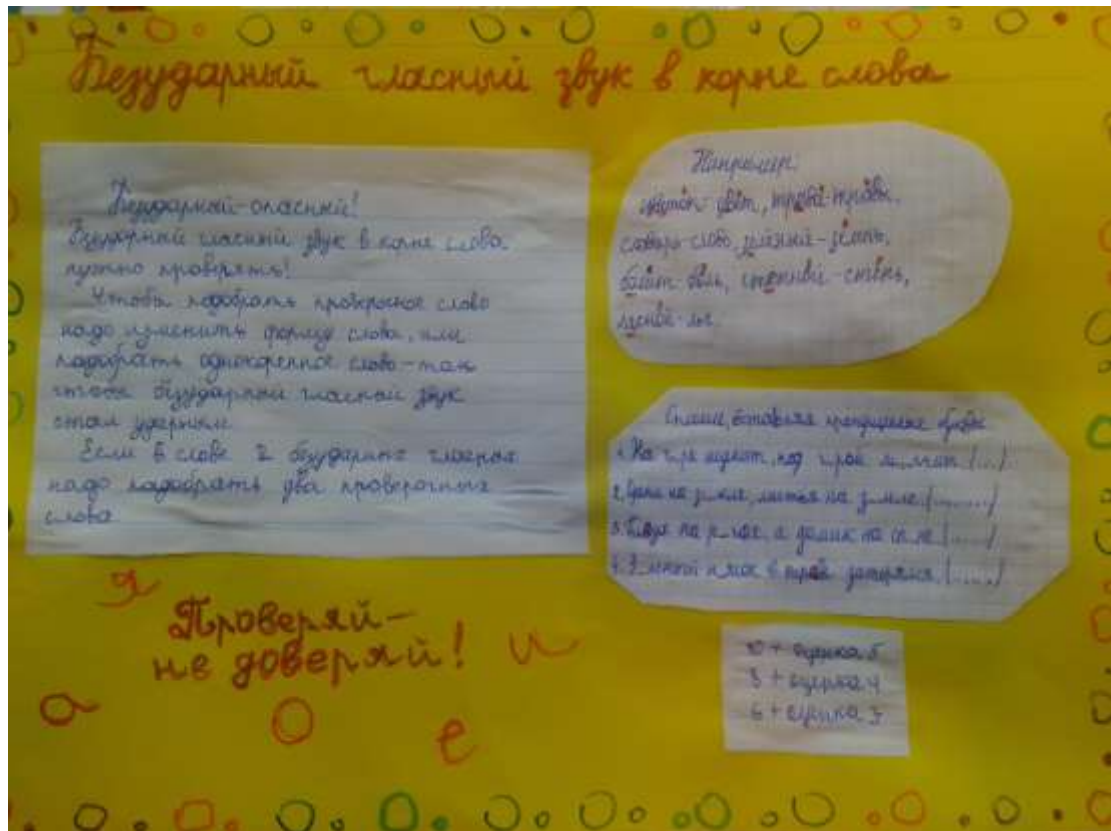 Безударный гласный звук в корне слова
Безударный-опасный!
Безударный гласный звук в корне слова
нужно проверять!
Чтобы подобрать проверочное слово
надо изменить форму слова, или
подобрать однокоренное слово-так
чтобы безударный гласный звук
стал ударным
Если в слове 2 безударные гласные
надо подобрать два проверочных
слова
Например:
цветок-цвет, трава-травы,
словарь-слово, зелёный-зелень,
болит-боль, степной-степь,
лесной-лес.
Спиши, вставляя пропущенные буквы
1. На г.ре шумит, под г.рой м.лчит. (...)
2. на з.мле,
3. на р.гах, а домик на сп.не (......)
4. в траве (......)
Проверяй-
не доверяй!
я
и
а
о
е
10 + оценка 5
8 + оценка 4
6 + оценка 3